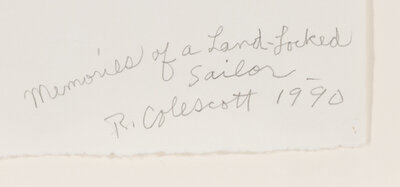 Memories of a Land-Locked
Sailor
R. Colescott 1990